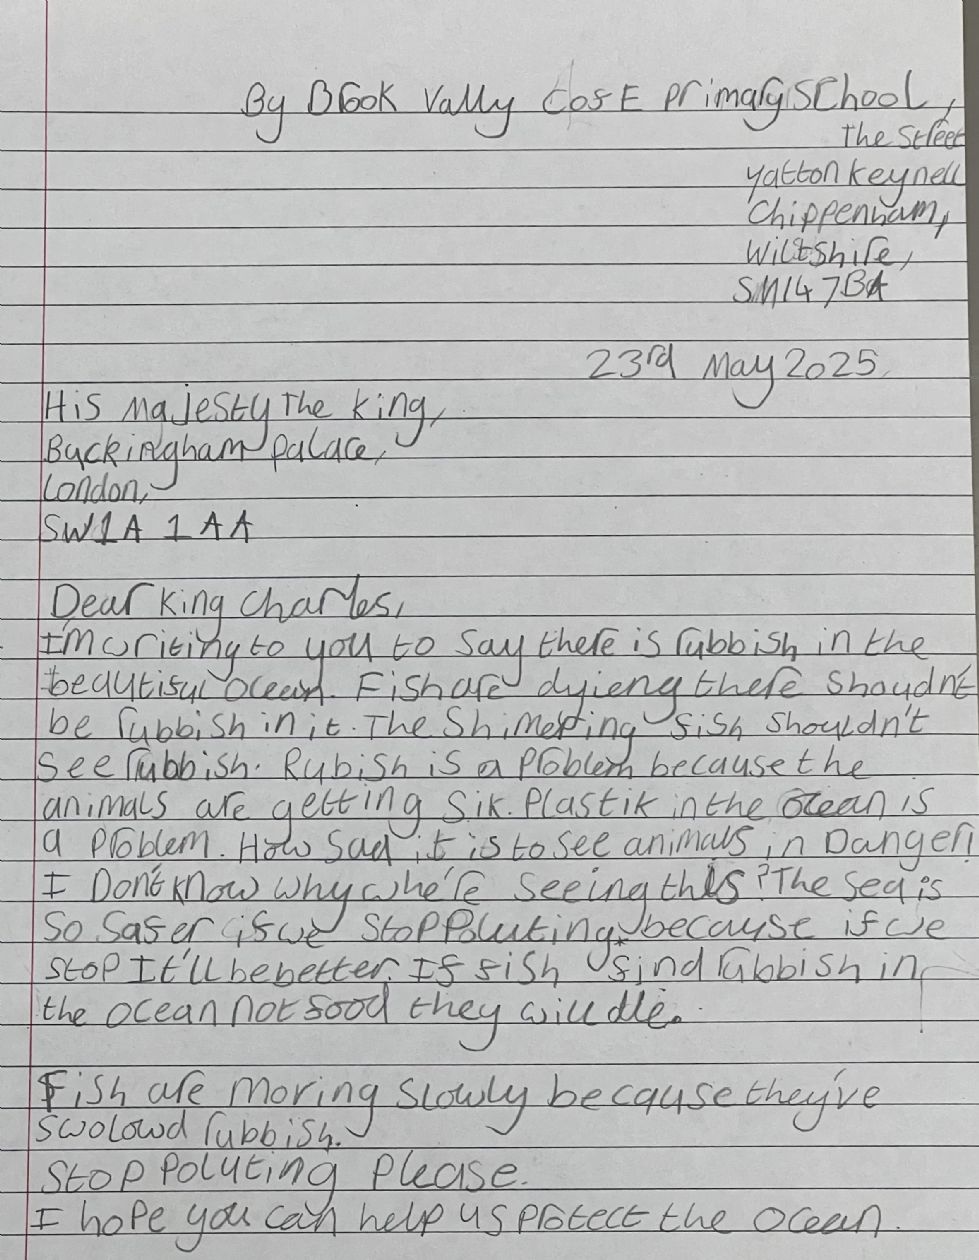 By Brook Vally C of E primary School,
The Street
yatton keynell
Chippenham,
Wiltshire,
SN14 7BA
23rd May 2025
His majesty The king,
Buckingham palace,
London,
SW1A 1AA
Dear king Charles,
I'm writing to you to say there is rubbish in the
beautiful ocean. Fish are dyieng there shoudn't
be rubbish in it. The Shimering fish shouldn't
see rubbish. Rubish is a problem because the
animals are getting sik. Plastik in the ocean is
a problem. How sad it is to see animals in Danger!
I Don't know why whe're seeing this? The sea is
so safer if we stop poluting, because if we
stop It'll be better. If fish find rubbish in
the ocean not food they will die.
Fish are moving slowly because they've
swolowd rubbish.
Stop poluting please.
I hope you can help us protect the ocean.